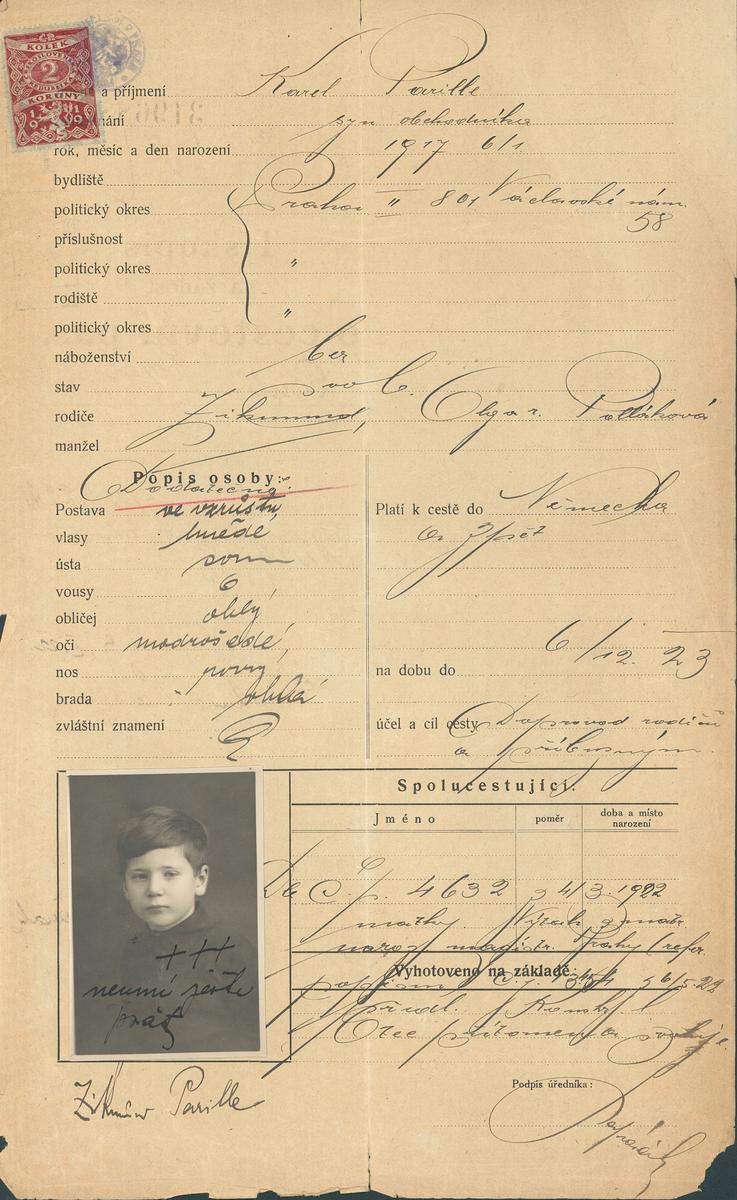 KOLEK
2
KORUNY
a příjmení Karel Parille
syn obchodníka
rok, měsíc a den narození 1917 6/1
bydliště
politický okres Praha II 801 Václavské nám.
58
příslušnost
politický okres "
rodiště
politický okres "
náboženství bez
stav svob.
rodiče Zikmund, Olga r. Polláková
manžel
Popis osoby:
Dodatečně
Postava ve vzrůstu,
vlasy hnědé
ústa soum
vousy 0
obličej oblý
oči modrošedé,
nos
brada oblá
zvláštní znamení
Platí k cestě do Německa
a zpět
na dobu do 6/12. 23
účel a cíl cesty Doprovod rodičů
a příbuzným
Spolucestující:
Jméno poměr doba a místo narození
Dle č. p. 4632 z 4/3. 1922
matky Výtah z matr.
naroz. magistr. Prahy (refer.
Vyhotoveno na základě:
předl.
Otec přítomen a svoluje.
+++
neumí ještě
psát
Podpis úředníka:
Zikmund Parille